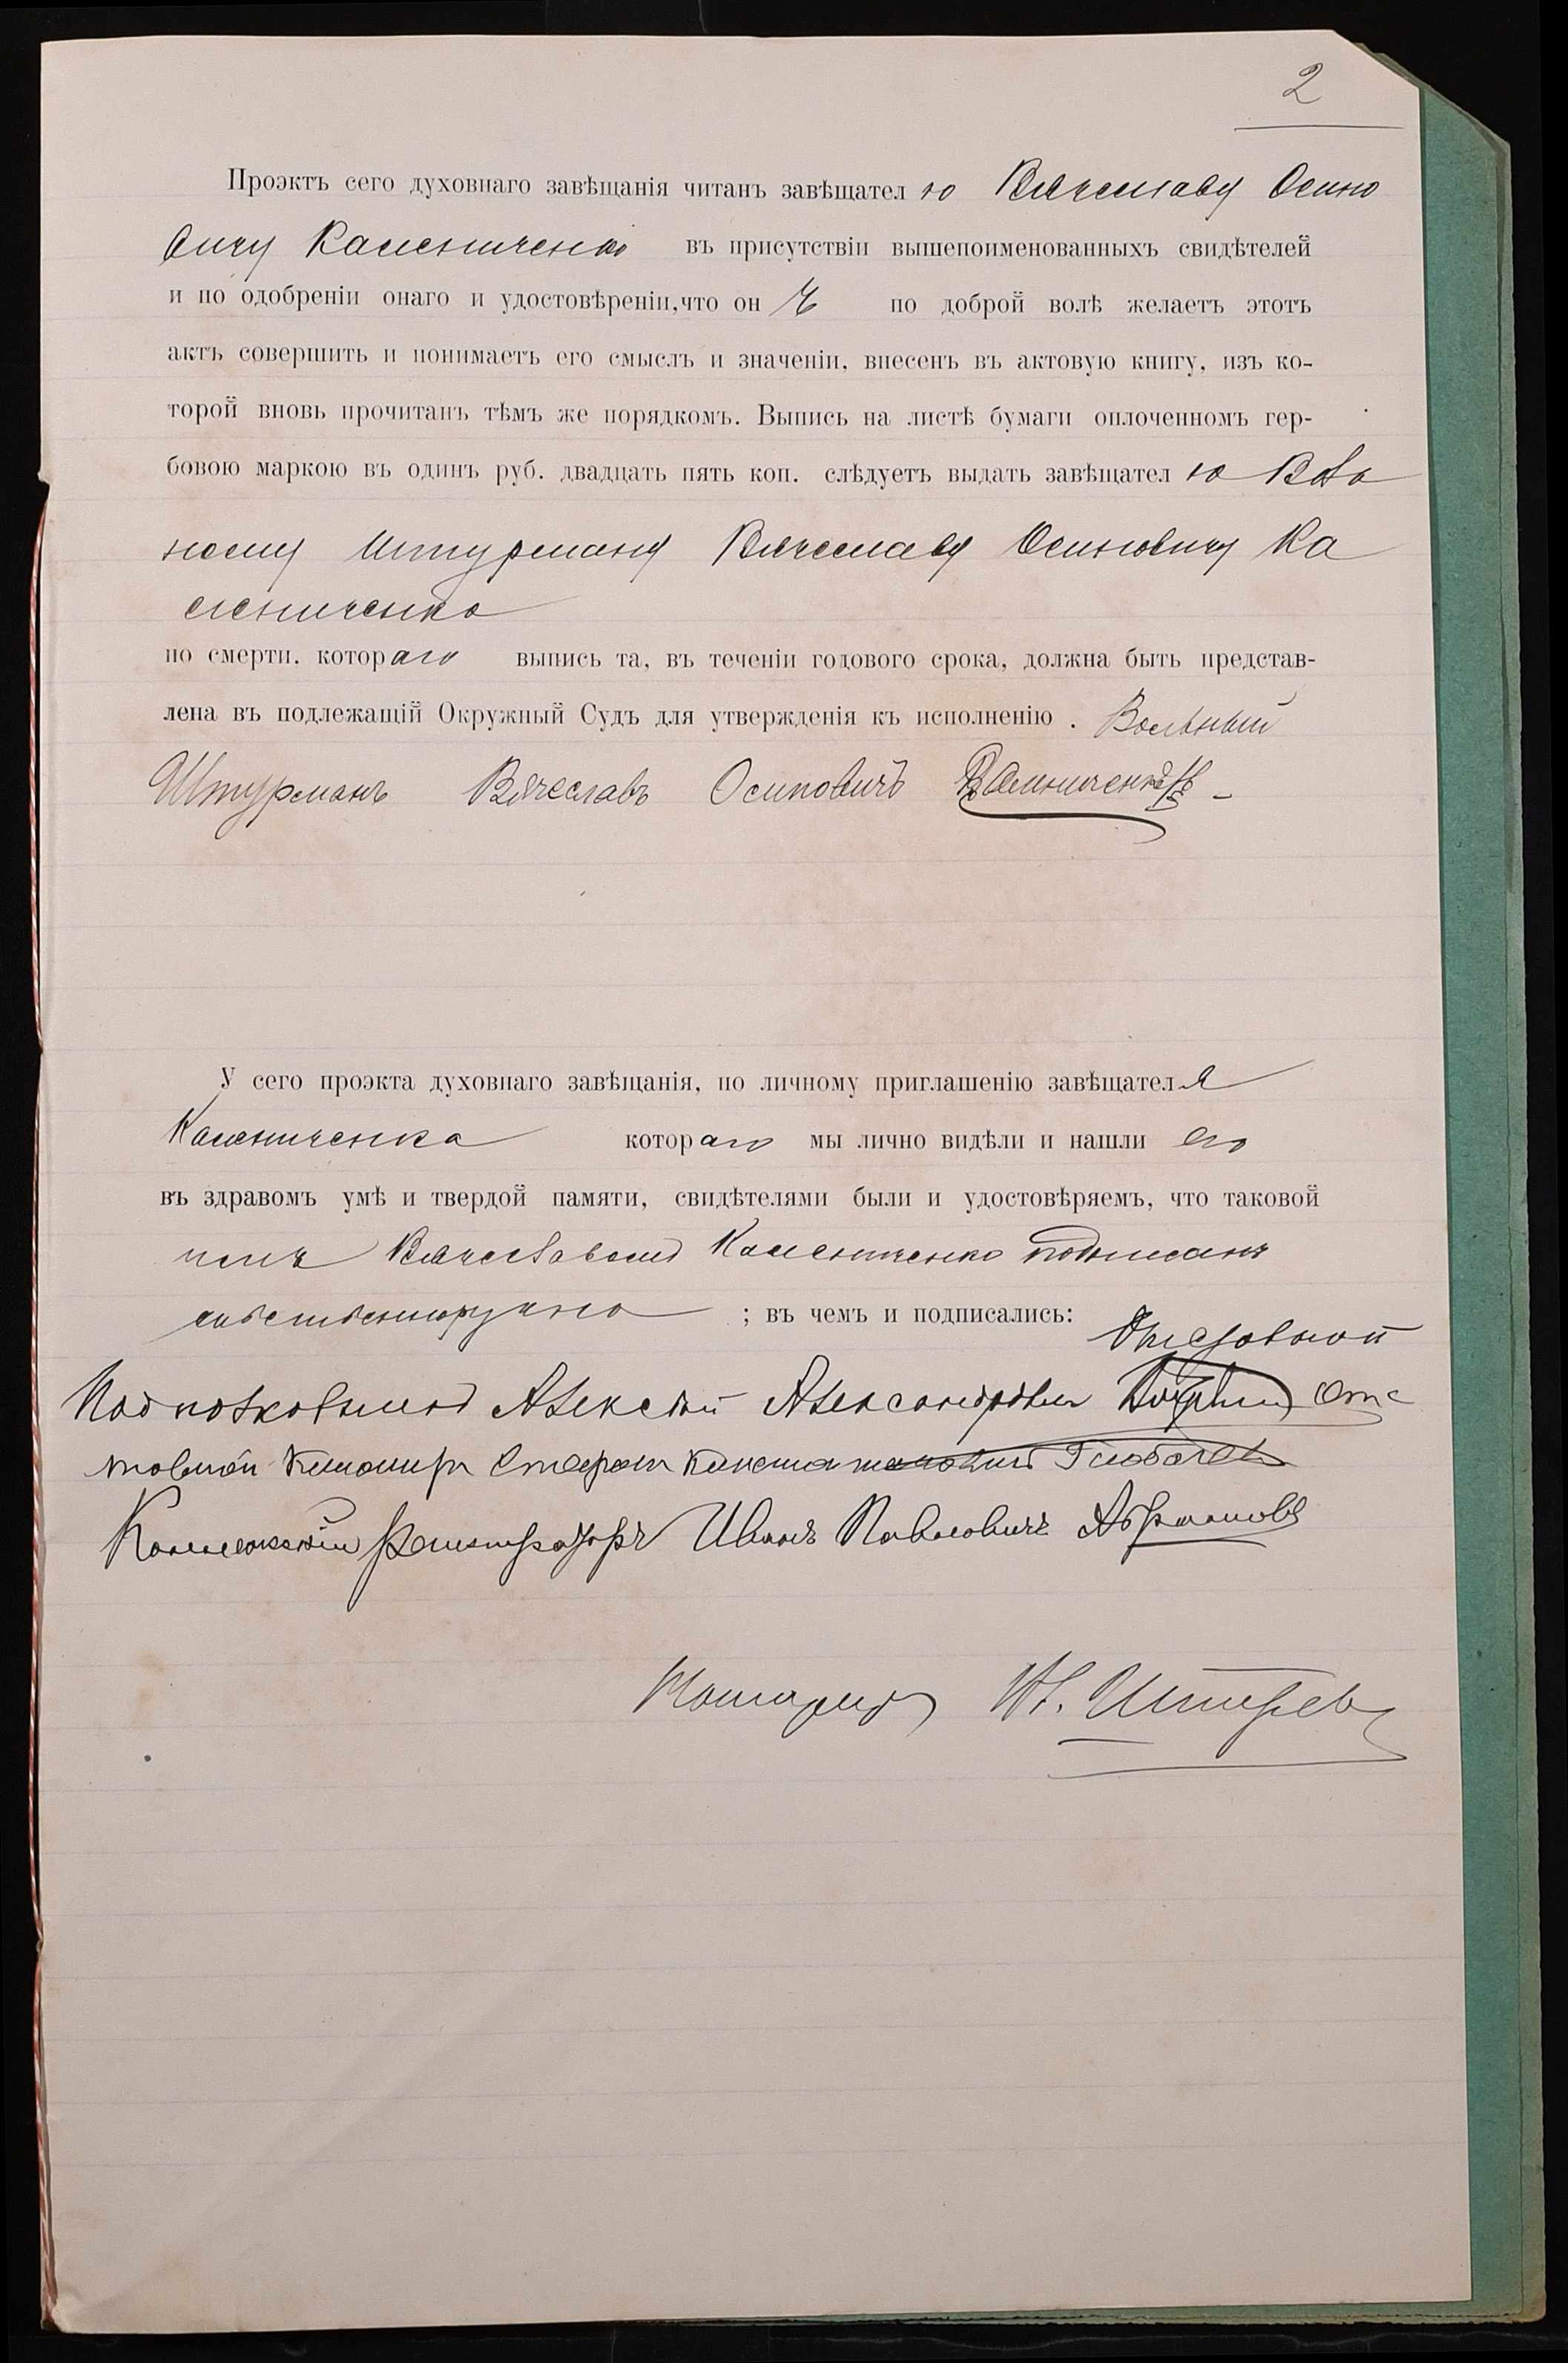 2
Проэктъ сего духовнаго завѣщанія читанъ завѣщател ю Вячеславу Осипо
вичу Каменниченко въ присутствіи вышепоименованныхъ свидѣтелей
и по одобреніи онаго и удостовѣреніи, что он ъ по доброй волѣ желаетъ этотъ
актъ совершить и понимаетъ его смыслъ и значеніи, внесенъ въ актовую книгу, изъ ко-
торой вновь прочитанъ тѣмъ же порядкомъ. Выпись на листѣ бумаги оплоченномъ гер-
бовою маркою въ одинъ руб. двадцать пять коп. слѣдуетъ выдать завѣщател ю Воль
ному Штурману Вячеславу Осиповичу Ка
мениченко
по смерти. котораго выпись та, въ теченіи годового срока, должна быть представ-
лена въ подлежащій Окружный Судъ для утвержденія къ исполненію . Вольный
Штурманъ Вячеславъ Осиповичъ
У сего проэкта духовнаго завѣщанія, по личному приглашенію завѣщателя
Камениченка котораго мы лично видѣли и нашли его
въ здравомъ умѣ и твердой памяти, свидѣтелями были и удостовѣряемъ, что таковой
имъ Вячеславомъ Камениченко подписанъ
собственноручно ; въ чемъ и подписались:
Подполковникъ Алексѣй Александровичъ От
ставной
Коллежскій Регистраторъ Иванъ Павловичъ Абрамовъ
Нотаріусъ